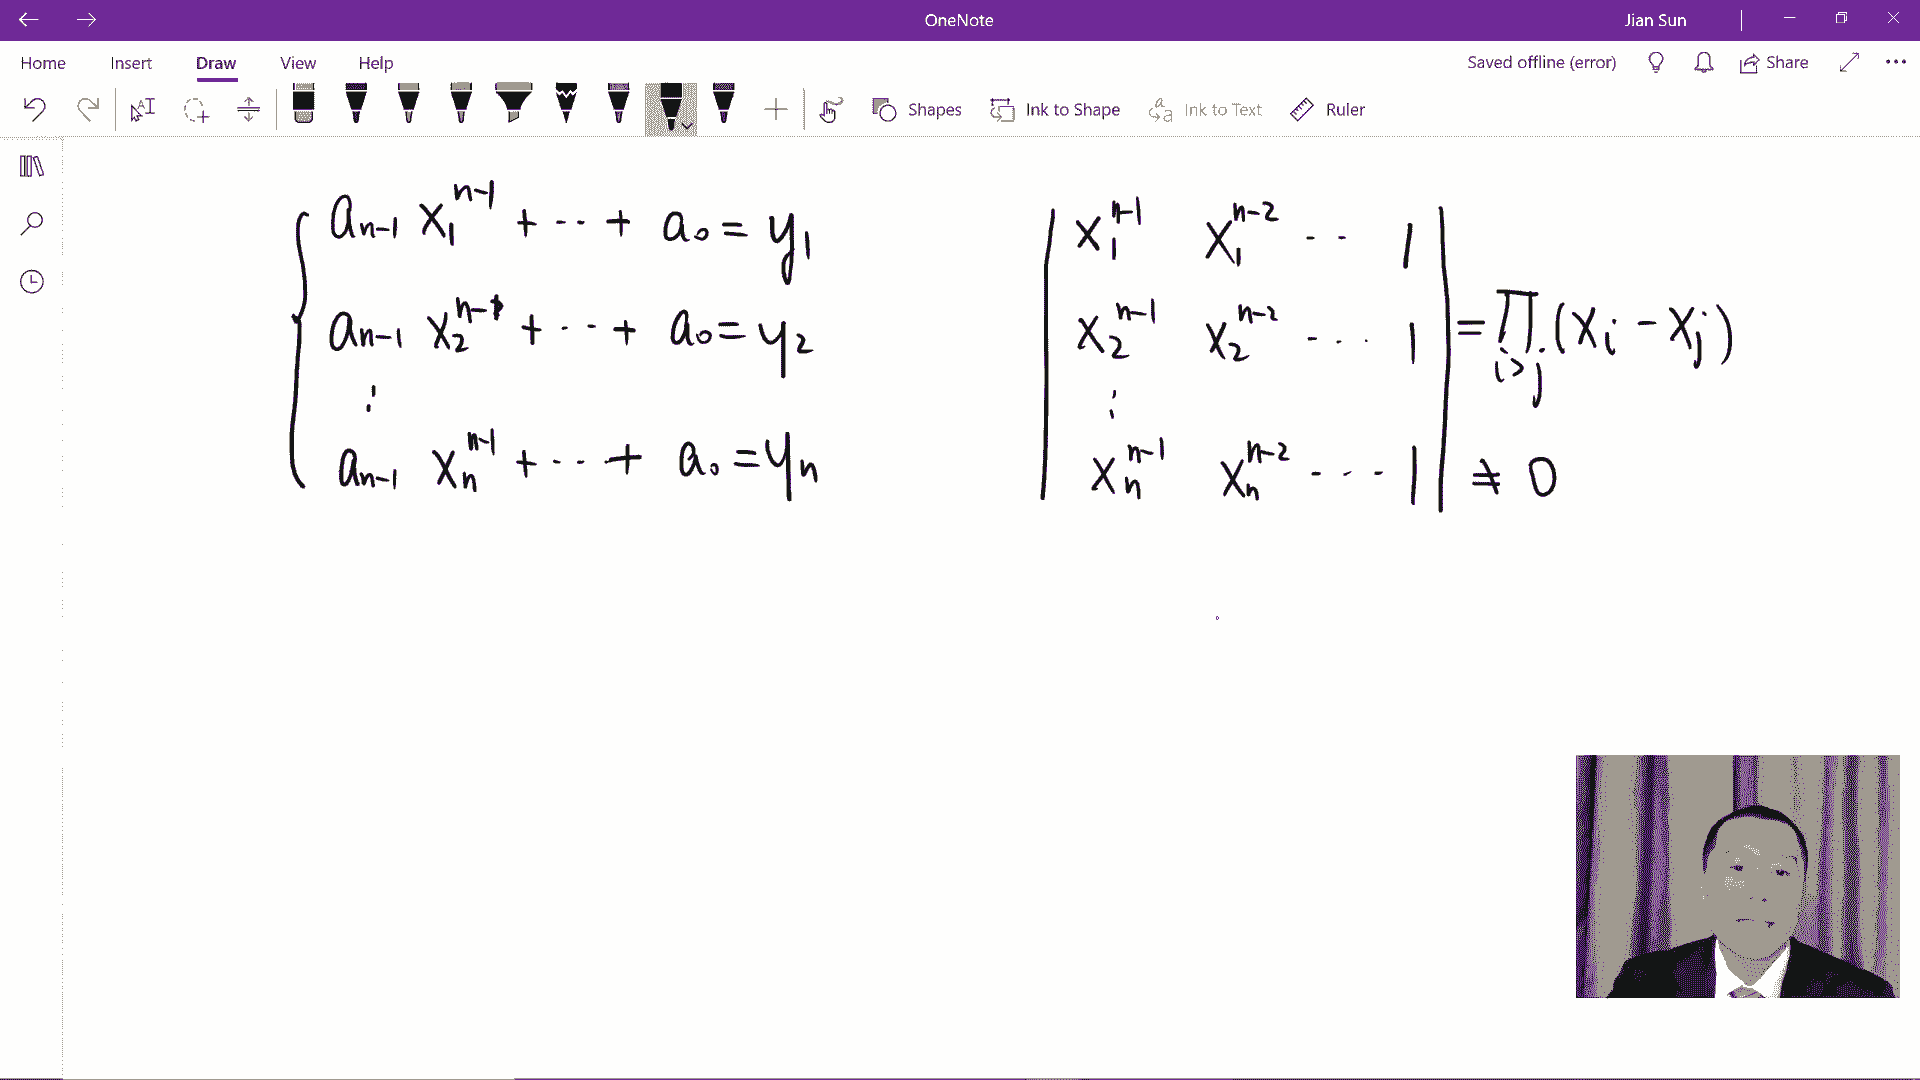 OneNote
Jian Sun
Home Insert Draw View Help
Saved offline (error) Share
Shapes Ink to Shape Ink to Text Ruler
a_{n-1} x_1^{n-1} + ··· + a_0 = y_1
a_{n-1} x_2^{n-1} + ··· + a_0 = y_2
⋮
a_{n-1} x_n^{n-1} + ··· + a_0 = y_n
| x_1^{n-1} x_1^{n-2} ·· 1 |
| x_2^{n-1} x_2^{n-2} ··· 1 | = ∏_{i>j} (x_i - x_j)
⋮
| x_n^{n-1} x_n^{n-2} ··· 1 | ≠ 0